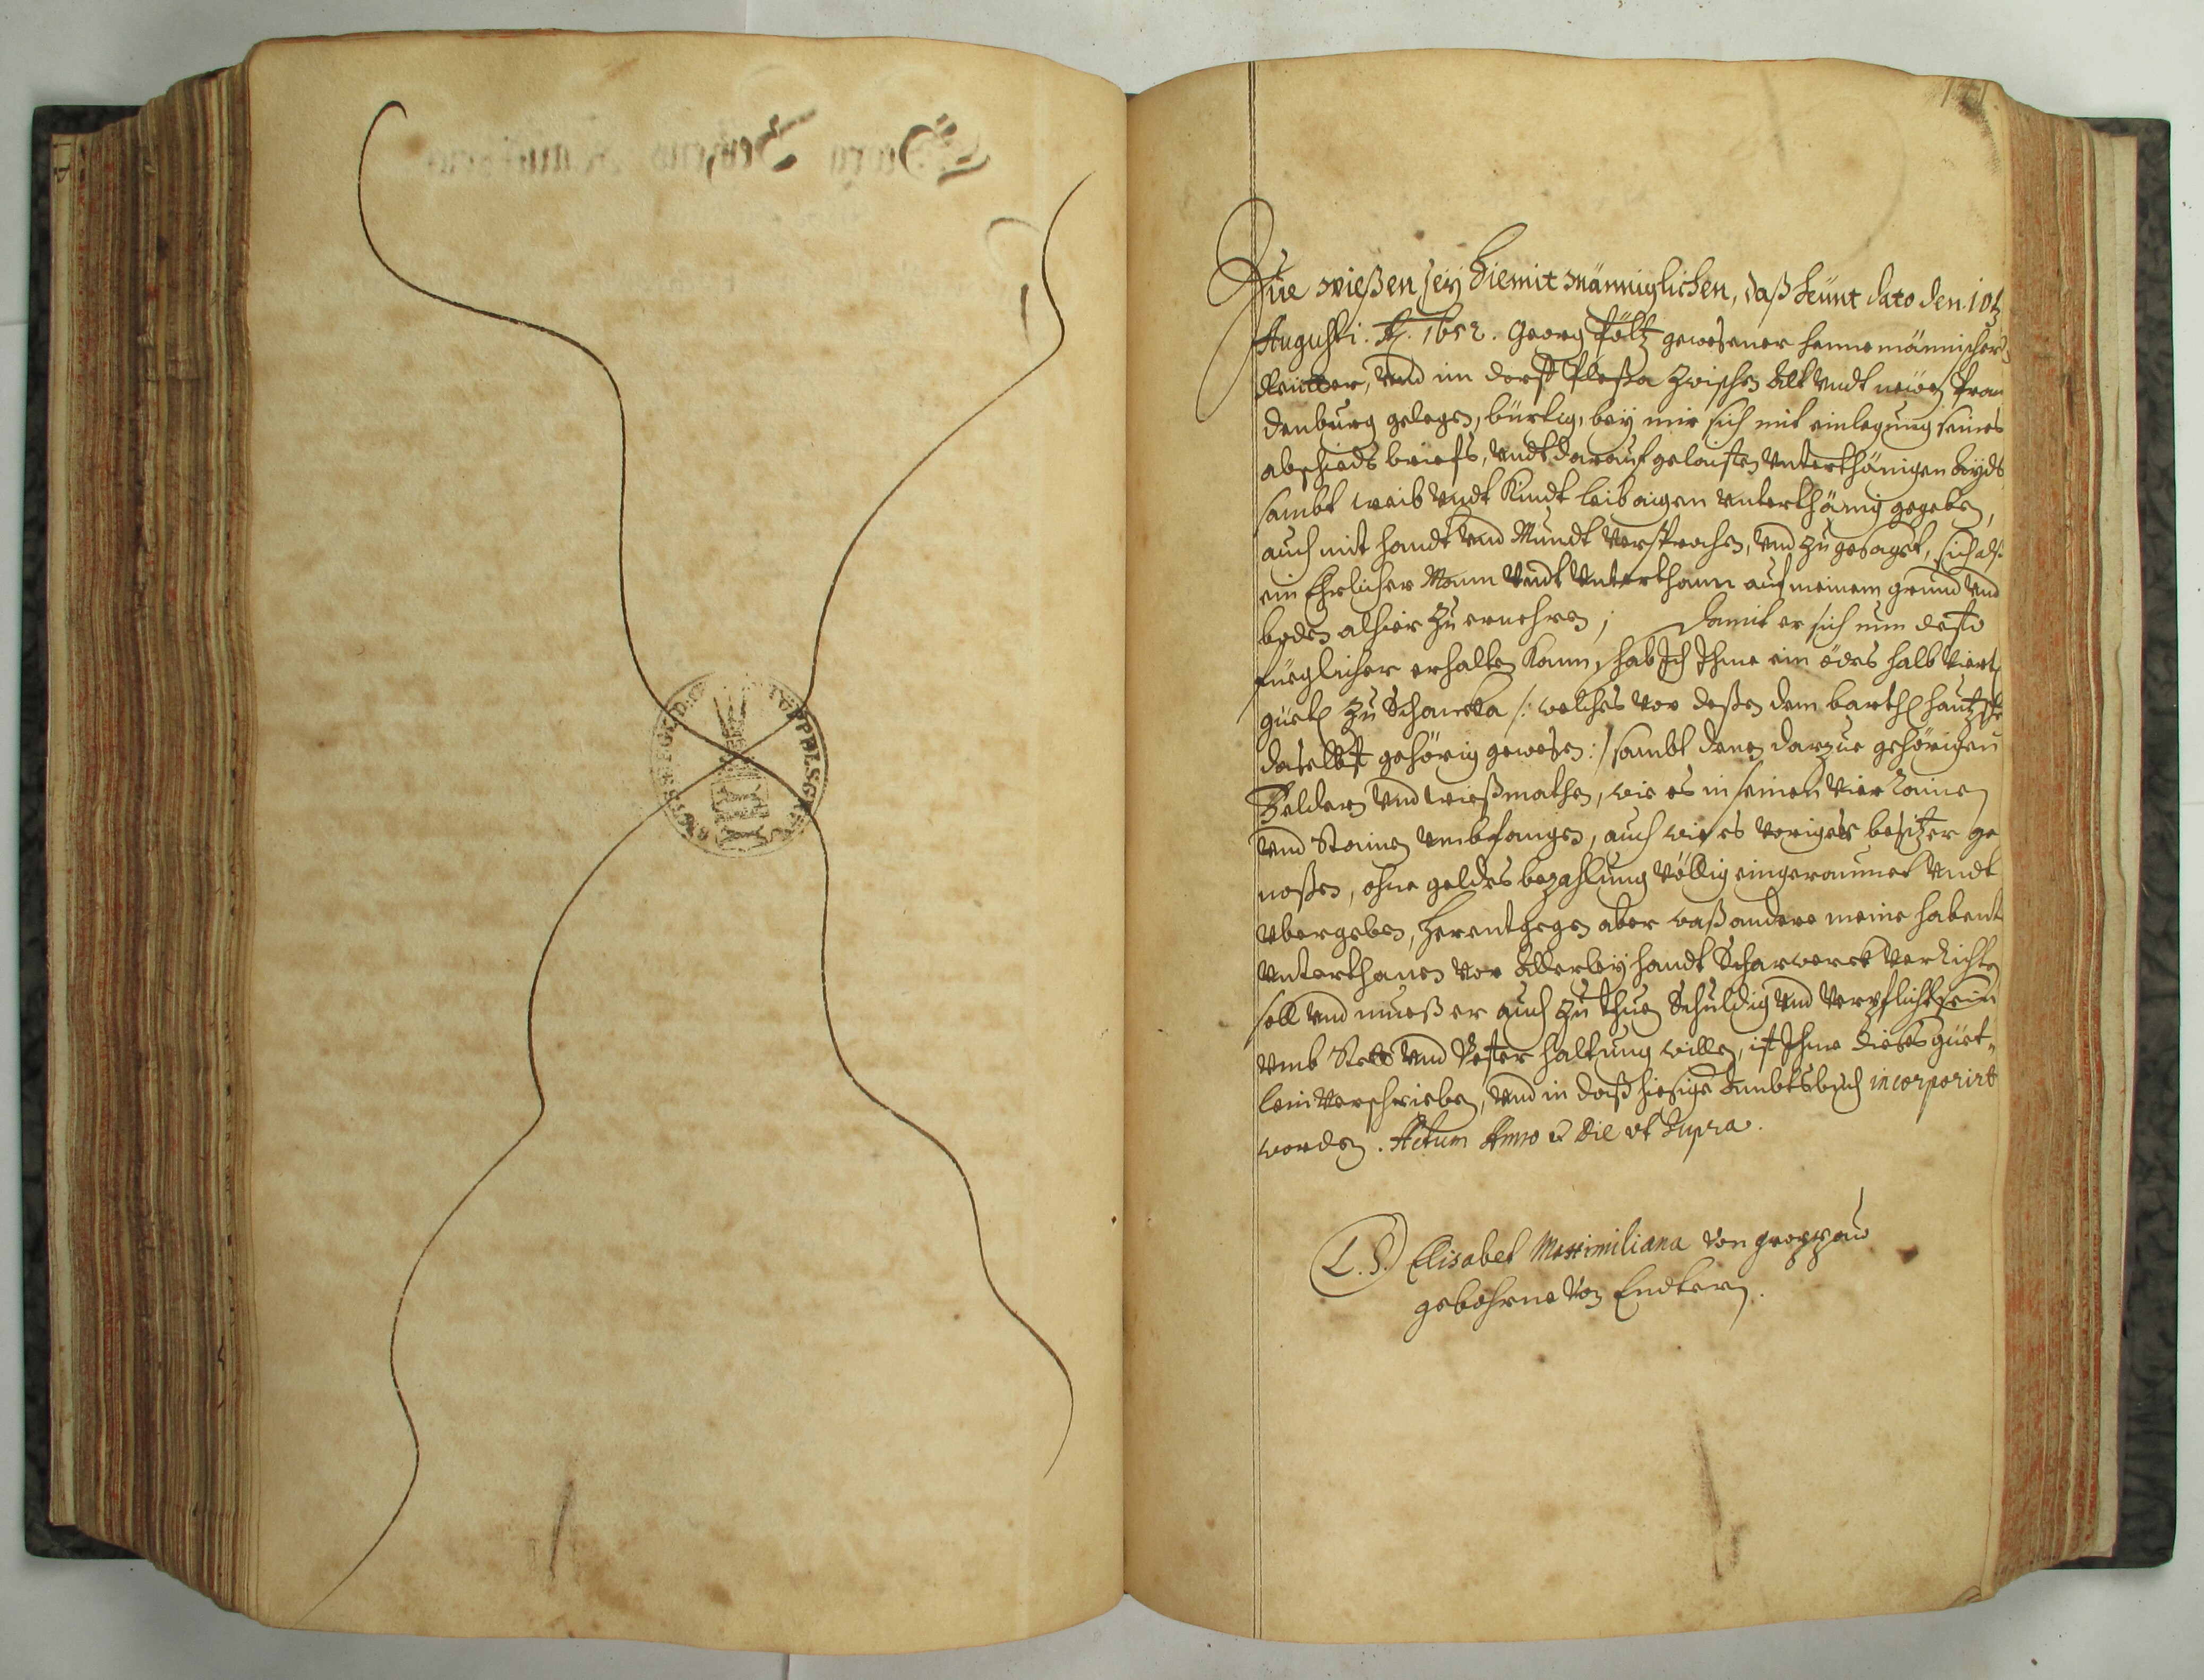 Zue wießen sey hiemit männiglichen, daß heünt dato den 10ts
Augusti. Ao. 1652. Georg Pöltz gewesener hannemännischer
Reütter, Vnd im dorff Pleßa zwischen Alt Vndt newen Bran
denburg gelegen, bürtig, bey mir sich mit einlegung seines
abschiedts brieffs, Vndt darauf gelaisten Vnterthänigen Ayds
sambt weib Vndt Kindt leibaigen Vnterthänig gegeben,
auch mit handt Vnd Mundt Versprochen, Vnd zu gesaget, sich alß
ein Ehrlicher Mann Vndt Vnterthann auf meinem grund Vnd
boden alhier zu ernehren; Damit er sich nun desto
füeglicher erhalten kann, hab Ich Ihme ein ödes halb Viertl
güetl zu Schancka /: welches vor deßen dem Barthl
daselbst gehörig gewesen :/ sambt denen darzue gehörigen
Feldern Vnd wießmathen, wie es in seinen Vier Rainen
Vnd Stainen Vmbfangen, auch wie es Voriger besitzer ge
noßen, ohne geldes bezahlung Völlig eingeraumet Vndt
Vbergeben, herentgegen aber waß andere meine habent
Vnterthanen Vor Allerley handt Scharwerck Verrichten
soll Vnd mueß er auch zu thuen Schuldig Vnd Verpflicht sein
Vmb Stett Vnd Vester haltung willen, ist Ihme dieses güet-
lein Verschrieben, Vnd in daß hiesige Ambtsbuch incorporirt
worden. Actum Anno & Die vt Supra.
(L. S.) Elisabet Maximiliana Von
gebohrne Von Endtern.